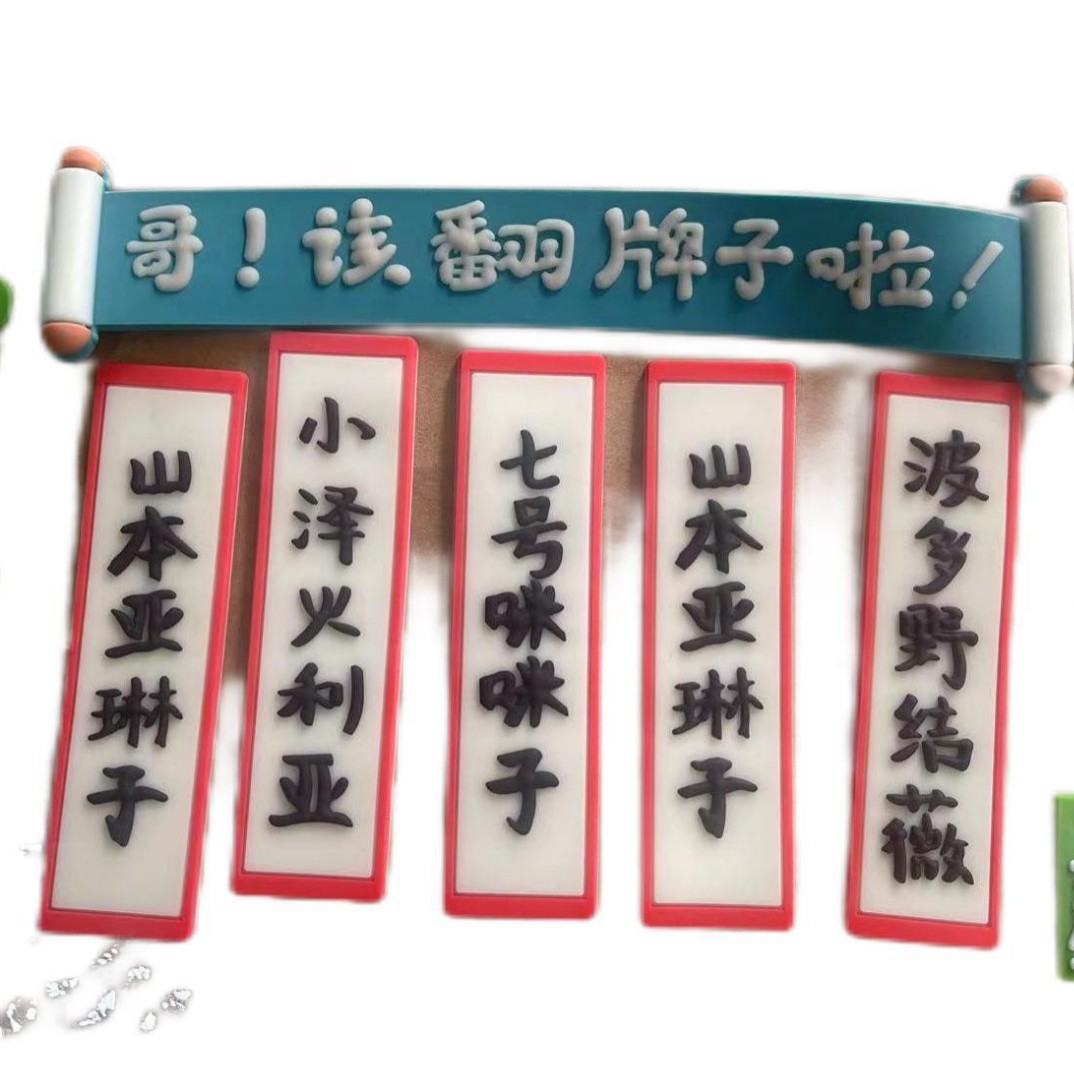 哥！该翻牌子啦！
山本亚琳子
小泽火利亚
七号咪咪子
山本亚琳子
波多野结薇